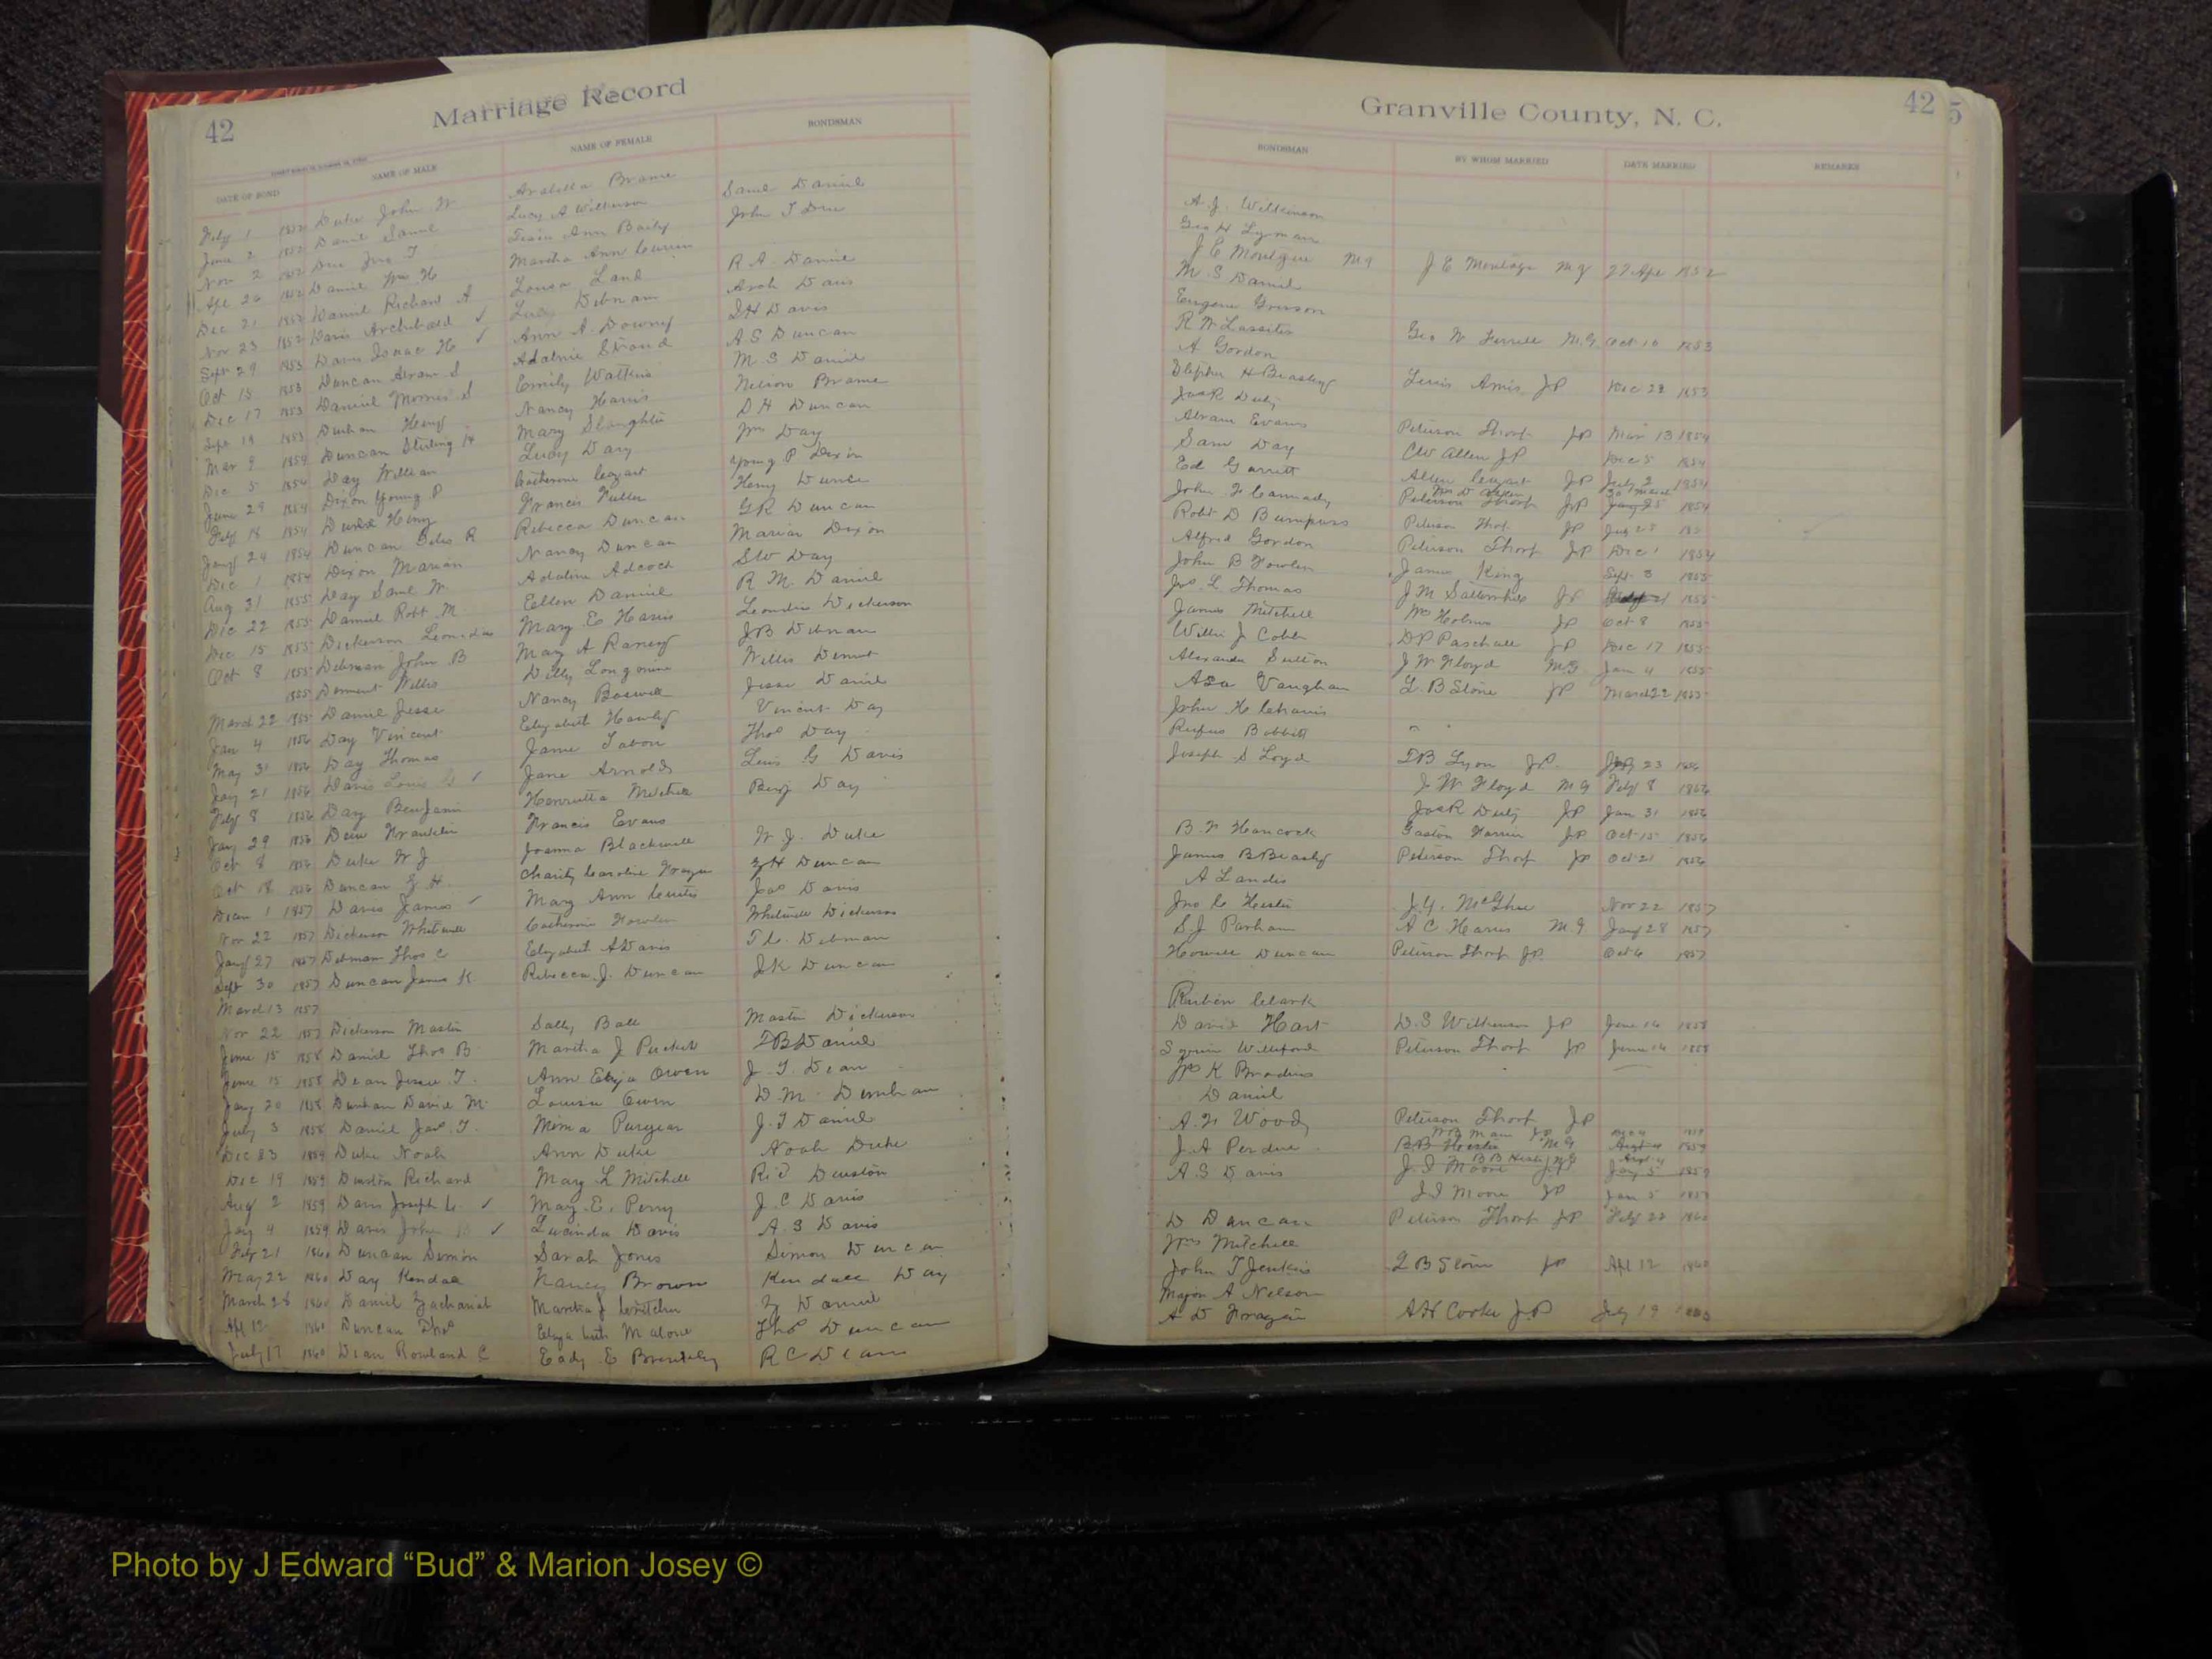 42
Marriage Record
DATE OF BOND NAME OF MALE NAME OF FEMALE BONDSMAN
Feby 1 1852 Duke John W Arabella Brame Saml Daniel
June 2 1852 Daniel Saml Lucy A Wilkerson John T Dew
Nov 2 1852 Dew Jno T Ann Baily
Apl 26 1852 Daniel Wm H Martha Ann R A Daniel
Dec 21 1852 Daniel Richard A Louisa Land Arch Davis
Nov 23 1852 Davis Archibald ✓ Lucy Debnam I H Davis
Sept 29 1853 Davis Isaac H ✓ Ann A. Downy A S Duncan
Oct 15 1853 Duncan Abram S Adaline Stroud M. S Daniel
Dec 17 1853 Daniel Morris S Emily Watkins Nelson Brame
Sept 19 1853 Durham Henry Nancy Harris S H Duncan
Mar 9 1854 Duncan Sterling H Mary Slaughter Wm Day
Dec 5 1854 Day William Lucy Dary Young P Dixon
June 29 1854 Dixon Young P Catherine Cozart Henry
Feby 18 1854 Henry Francis Fuller G R Duncan
Jany 24 1854 Duncan Giles R Rebecca Duncan Marion Dixon
Dec 1 1854 Dixon Marion Nancy Duncan S W Day
Aug 31 1855 Day Saml W Adaline Adcock R M. Daniel
Dec 22 1855 Daniel Robt M. Ellen Daniel Leonidas Dickerson
Dec 15 1855 Dickerson Leonidas Mary E Harris J B Debnam
Oct 8 1855 Debnam John B Mary A Raney Willis Dement
1855 Dement Willis Dilly Longmire Jesse Daniel
March 22 1855 Daniel Jesse Nancy Boswell Vincent Day
Jan 4 1856 Day Vincent Elizabeth Hawley Thos Day
May 31 1856 Day Thomas Jane Tabon Louis G Davis
Jany 21 1856 Davis Louis G ✓ Jane Arnold Benj Day
Feby 8 1856 Day Benjamin Henrietta Mitchell
Jany 29 1856 Dew Franklin Francis Evans W. J. Duke
Oct 8 1856 Duke W J. Joanna Blackwell Z H Duncan
Oct 18 1856 Duncan Z H. Charity Caroline Jas Davis
1 1857 Davis James ✓ Mary Ann Whitwell Dickerson
Nov 22 1857 Dickerson Whitwell Catherine Fowler T C. Debnam
Jany 27 1857 Debnam Thos C Elizabeth A Davis J K Duncan
Sept 30 1857 Duncan James K Rebecca J. Duncan
March 13 1857
Nov 22 1857 Dickerson Martin Sally Ball Martin Dickerson
June 15 1858 Daniel Thos B Martha J Puckett T B Daniel
June 15 1858 Dean Jesse T. Ann Eliza Owen J. T. Dean
Jany 20 1858 Dunham David M. Louisa Owen D. M. Dunham
July 3 1858 Daniel Jas. T. Mema Puryear J. T Daniel
Dec 23 1859 Duke Noah Ann Duke Noah Duke
Dec 19 1859 Dunston Richard Mary L Mitchell Rid Dunston
Aug 2 1859 Davis Joseph C. ✓ Mary E. Perry J. C Davis
Jany 4 1859 Davis John ✓ Lucinda Davis A. S Davis
Feby 21 1860 Duncan Simon Sarah Jones Simon Duncan
May 22 1860 Day Kendall Nancy Brown Kendall Day
March 28 1860 Daniel Zachariah Martha J Critcher Z Daniel
Apl 12 1860 Duncan Thos Elizabeth Malone Thos Duncan
July 17 1860 Dean Rowland C Eady E R C Dean
Granville County, N. C.
42 5
BONDSMAN BY WHOM MARRIED DATE MARRIED REMARKS
A. J. Wilkinson
Geo H Lyman
J E Montague M G J E Montague M G 27 Apl 1852
M. S Daniel
Eugene Grisson
R W Lassiter Geo W Ferrell M. G. Oct 10 1853
A Gordon
Stephen H Beasley Lewis Amis JP Dec 23 1853
Jas R Duty
Abram Evans Peterson Thorp JP Mar 13 1854
Sam Day CW Allen JP Dec 5 1854
Ed Garrett Allen Cozart JP July 2 1854
John F Cannady Peterson Thorp JP 1854
Robt D Bumpass Peterson Thorp JP
Alfred Gordon Peterson Thorp JP Dec 1 1854
John B Fowler James King Sept 3 1855
Jno L Thomas J M Satterwhite JP 1855
James Mitchell Wm Holmes JP Oct 8 1855
Willie J Cobb D P Paschall JP Dec 17 1855
Alexander Sutton J W Floyd M. G Jan 4 1855
Asa Vaughan L. B Stone JP March 22 1855
John H
Rufus Bobbitt " "
Joseph S Loyd I B Lyon JP. 23 1856
J W Floyd M G Feby 8 1856
Jas R Duty JP Jan 31 1856
B. F Hancock Gaston Farrier JP Oct 15 1856
James B Beasley Peterson Thorp JP Oct 21 1856
A Landis
Jno C Hester J. Y. McGhee Nov 22 1857
S. J Parham A C Harris M. G Jany 28 1857
Howell Duncan Peterson Thorp JP. Oct 6 1857
Reuben Clark
David Hart D. S Wilkerson JP June 16 1858
Williford Peterson Thorp JP June 16 1858
Jas K
Daniel
A. F Wood Peterson Thorp JP
J. A Perdue B B Hester M G 1859
A S Davis J. J Moore Jany 5 1859
J J Moore JP Jan 5 1859
D Duncan Peterson Thorp JP Feby 22 1860
Wm Mitchell
John T Jenkins L B Stone JP Apl 12 1860
Major A Nelson
A D Fragin A H Cooke J P July 19
Photo by J Edward “Bud” & Marion Josey ©